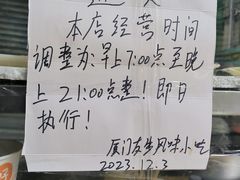 本店经营时间
调整为:早上7:00点至晚
上21:00点整!即日
执行!
厦门友生风味小吃
2023.12.3